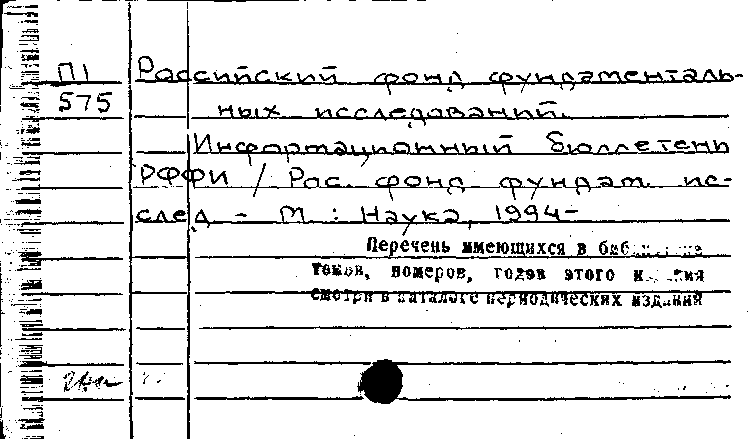 П1 Российский фонд фундаменталь-
575 ных исследований.
Информационный бюллетень
РФФИ / Рос. фонд фундам. ис-
след – М.: Наука, 1994–
Перечень имеющихся в
томов, номеров, годов этого
смотри в каталоге периодических изданий